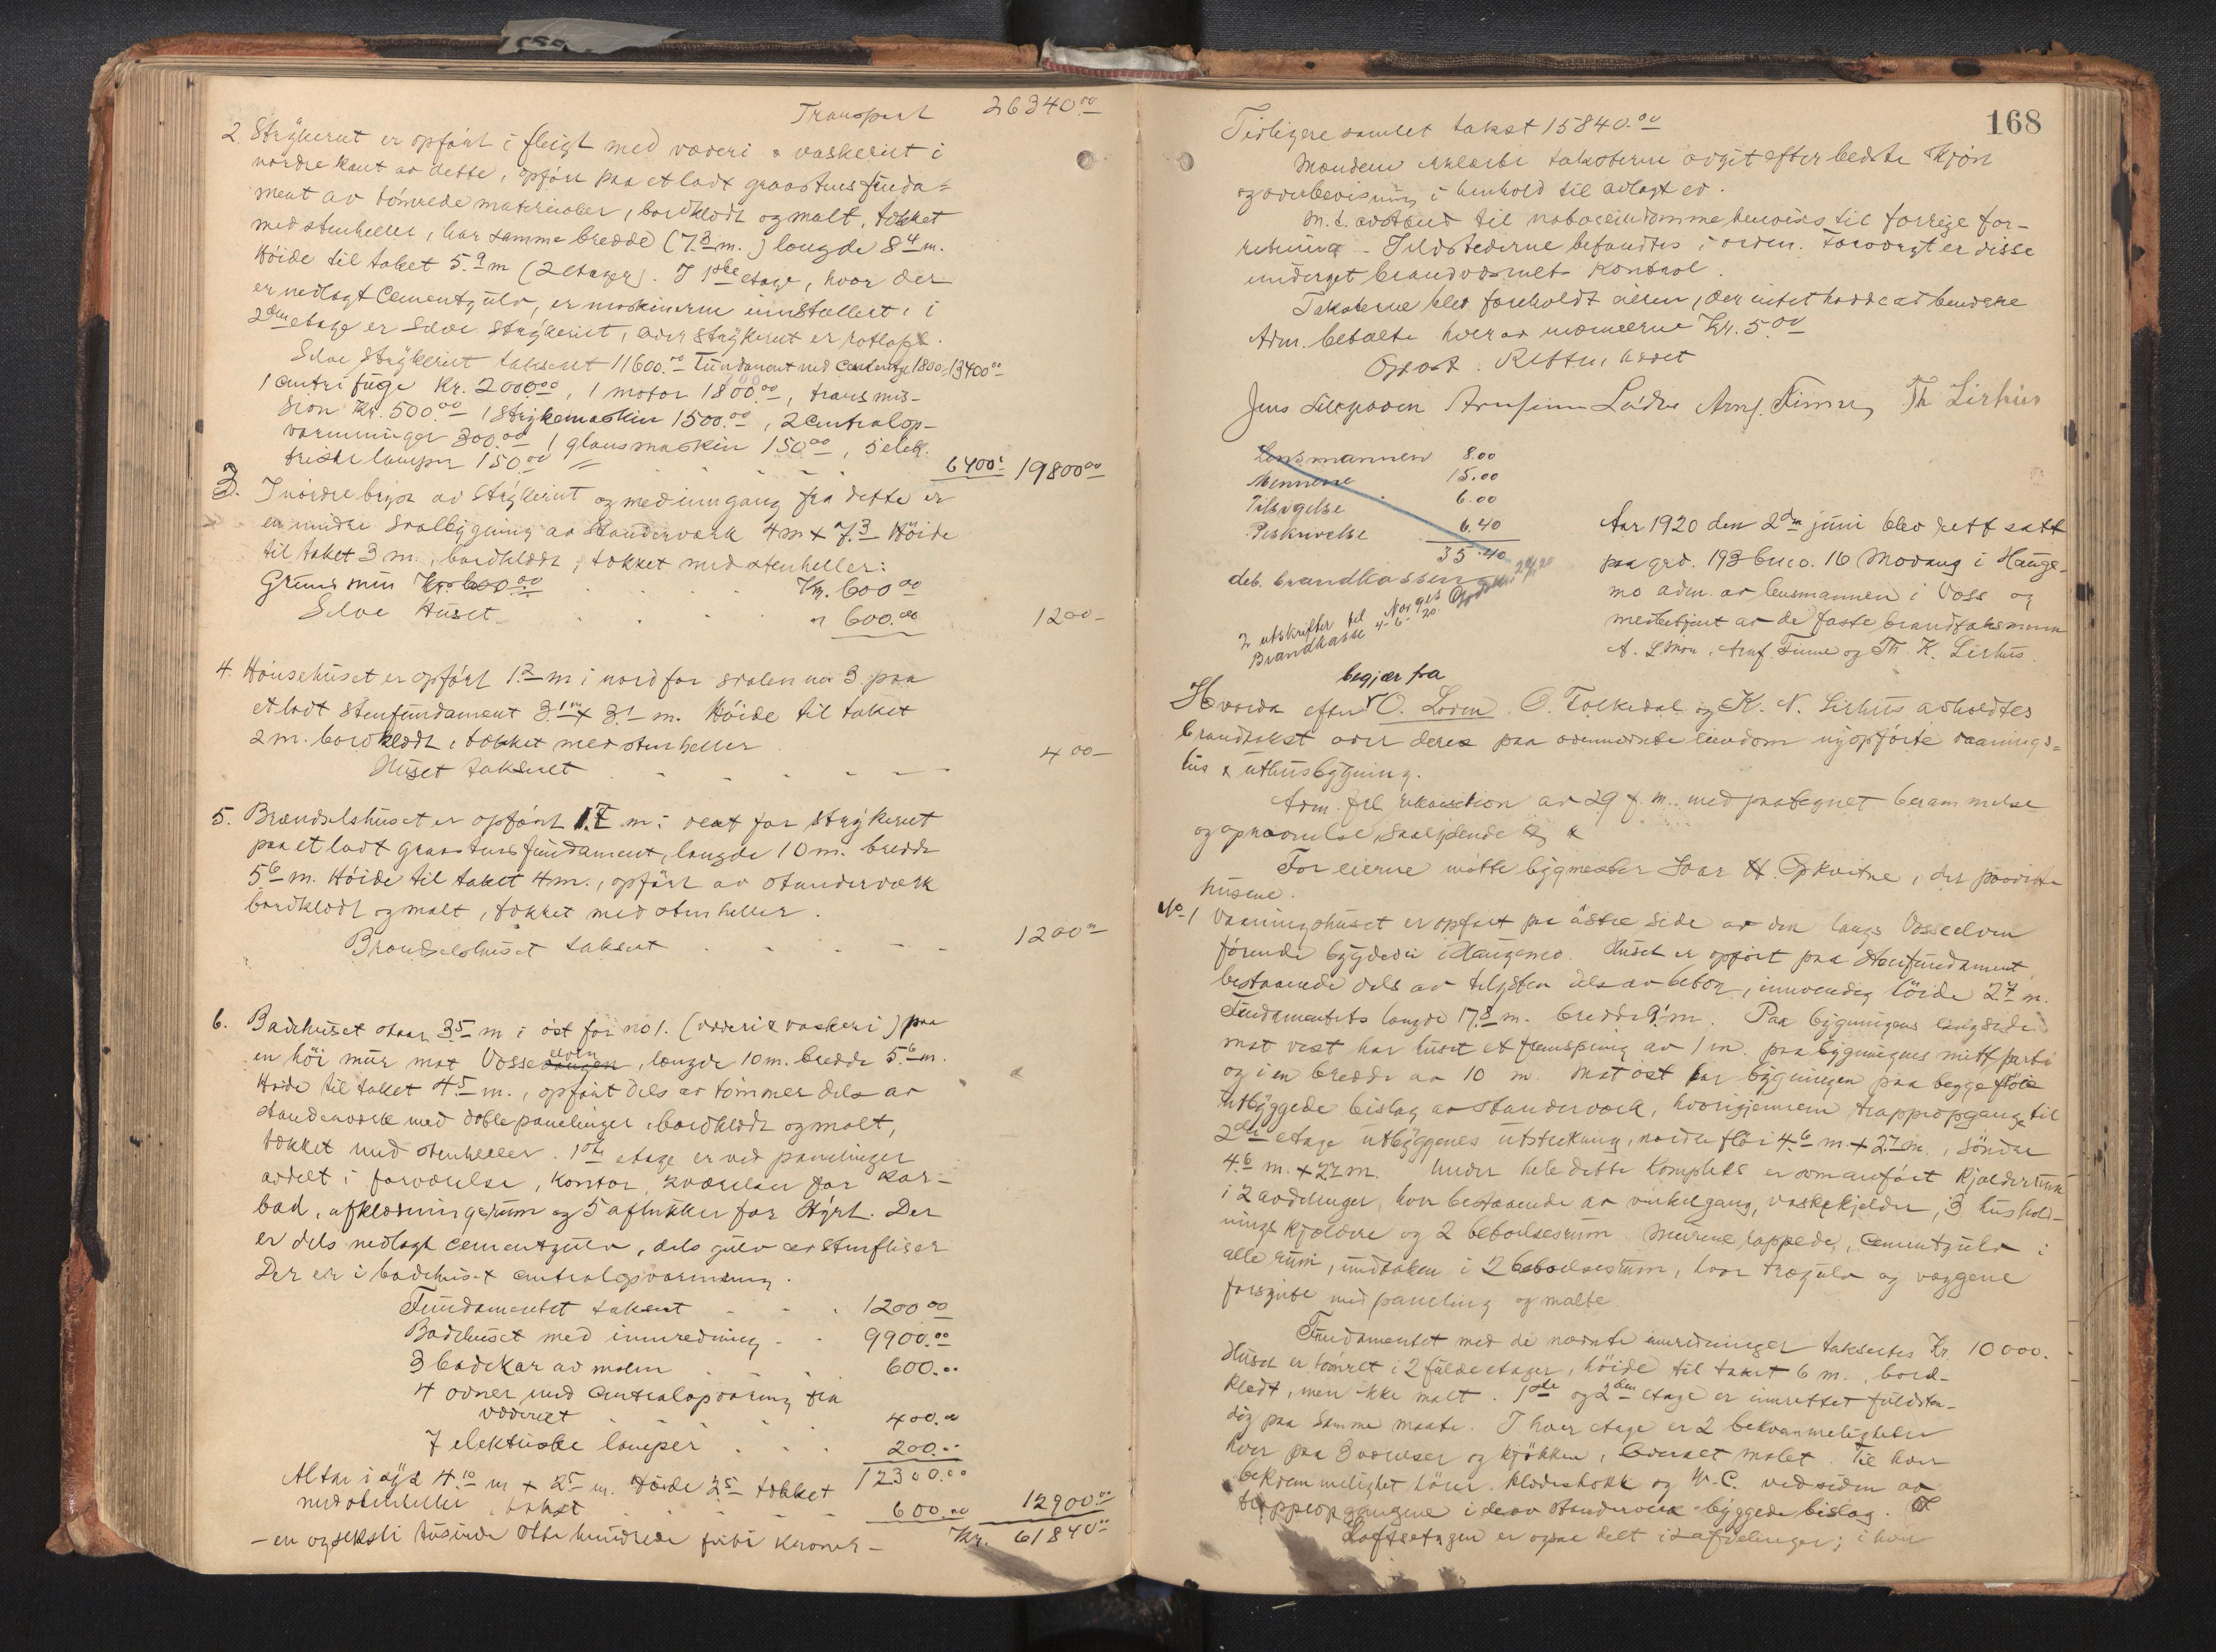 Transport 26340.00
2. Strykeriet er opført i fleigt med væveri & vaskeriet i
nordre kant av dette, opført paa et ladt graastensfunda-
ment av tømrede materialer, bordklædt og malt, tækket
med stenheller, har samme bredde (7.3 m.) længde 8.4 m.
Høide til taket 5.9 m (2 etager). I 1ste etage, hvor der
er nedlagt Cementgulv, er maskinerne innstallert, i
2den etage er selve strykeriet, over strykeriet er rotloft.
Selve strykeriet taksert 11600.00 Fundament med Cementgulv 1800 = 13400.00
1 centrifuge Kr. 2000.00, 1 motor 1800.00, transmis-
sion Kr. 500.00 1 strykemaskin 1500.00, 2 Centralop-
varmninger 300.00 1 glansmaskin 150.00, 5 elek.
triske lamper 150.00 6400.- 19800.00
3. I nordre bryst av strykeriet og med inngang fra dette er
en mindre svalbygning av Standerværk 4 m x 7.3 Høide
til taket 3 m., bordklædt, tækket med stenheller:
Grundmur Kr. 600.00 Kr. 600.00
Selve Huset " 600.00 1200-
4. Hønsehuset er opført 1.2 m i nord for svalen no 3 paa
et ladt stenfundament 3.1 m x 3.1 m. Høide til taket
2 m. bordklædt, tækket med stenheller
Huset taksert 400-
5. Brændselshuset er opført 1.7 m i vest for strykeriet
paa et ladt graastensfundament, længde 10 m. bredde
5.6 m. Høide til taket 4 m., opført av standerværk
bordklædt og malt, tækket med stenheller.
Brændselshuset taksert 1200.00
6. Badehuset staar 3.5 m i øst for no 1. (væveri & vaskeri) paa
en høi mur mot Vosseelven, længde 10 m. bredde 5.6 m.
Høide til taket 4.5 m., opført dels av tømmer dels av
standerværk med doble panelinger, bordklædt og malt,
tækket med stenheller. 1ste etage er ved panelinger
avdelt i forværelse, kontor, 2 værelser for kar-
bad, afklædningsrum og 5 aflukker for Styrt. Der
er dels nedlagt cementgulv, dels gulv av stenfliser
Der er i badehuset centralopvarmning.
Fundamentet taksert 1200.00
Badehuset med innredning 9900.00
3 badekar av malm 600.00
4 ovner med Centralopvarmng fra
væveriet 400.00
7 elektriske lamper 200.00
12300.00
Altan i syd 4.10 m x 2.5 m. Høide 2.5 tækket
med stenheller, takst 600.00 12900.00
- en og seksti tusinde otte hundrede førti kroner - Kr. 61840.00
168
Tidligere samlet takst 15840.00
Mændene erklærte taksterne avgit efter bedste skjøn
og overbevisning i henhold til avlagt ed.
M. h. avstand til naboeiendomme henvises til forrige for-
retning. Ildstederne befandtes i orden. Forøvrigt er disse
undergit brandvæsenets kontrol.
Taksterne blev foreholdt eieren, der intet hadde at bemerke
Adm. betalte hver av mændene Kr. 5.00
Oplæst. Retten hævet
Jens Lilegraven Arnfinn Lødve Arnf. Finne, Th Lirhus
Lensmannen 8.00
Mennene 15.00
Tilsigelse 6.00
Beskrivelse 6.40
35.40
deb. brandkassen
2 utskrifter til Norges
Brandkasse 4-6-20
Aar 1920 den 2den juni blev rett satt
paa grd. 193 bruo. 16 Modang i Hauge-
mo adm. av lensmannen i Voss og
medbetjent av de faste brandtaksmenn
A. L Mon, Arnf. Finne og Th. K. Lirhus.
begjær fra
Hvorda efter O. Loven O. Tolkedal og K. N. Lirhus avholdtes
brandtakst over deres paa ovennevnte eiendom nyopførte vaanings-
hus & uthusbygning.
Adm. frl. rekvisition av 29 f. m. med paategnet berammelse
og opnævnelse saalydende
For eierne møtte bygmester Ivar H. Opkvitne, der paaviste
husene.
No 1 Vaaningshuset er opført paa østre side av den langs Vosseelven
førende bygdevei i Haugemo. Huset er opført paa stenfundament,
bestaaende dels av telgsten dels av beton, innvendig høide 2.4 m.
Fundamentets længde 17.8 m. bredde 9.1 m. Paa bygningens langside
mot vest har huset et framspring av 1 m. paa bygningens mittparti
og i en bredde av 10 m. Mot øst har bygningen paa begge fløie
utbyggede bislag av standerværk, hvorigjennem trappopgange til
2den etage. Utbyggenes utstrekning, nordre fløi 4.6 m x 2.7 m., søndre
4.6 m. x 2.7 m. Under hele dette kompleks er som anført kjælderrum
i 2 avdelinger, hver bestaaende av vinkelgang, vaskekjelder, 3 hushold-
nings kjældere og 2 beboelsesrum. Murene rappede, cementgulv i
alle rum, undtaken i 2 beboelsesrum, hvor trægulv og væggene
forsynte med paneling og malte
Fundamentet med de nævnte innredninger taksertes Kr. 10000.
Huset er tømret i 2 fulde etager, høide til taket 6 m., bord-
klædt, men ikke malt. 1ste og 2den etage er innrettet fuldsten-
dig paa samme maate. I hver etage er 2 bekvemmeligheter
hver paa 3 værelser og kjøkken, överalt malet. Til hver
bekvemmelighet hører klædeskott og W. C. ved siden av
trappeopgangene i de av standerverk byggede bislag.
Loftsetagen er ogsaa delt i 2 afdelinger; i hver